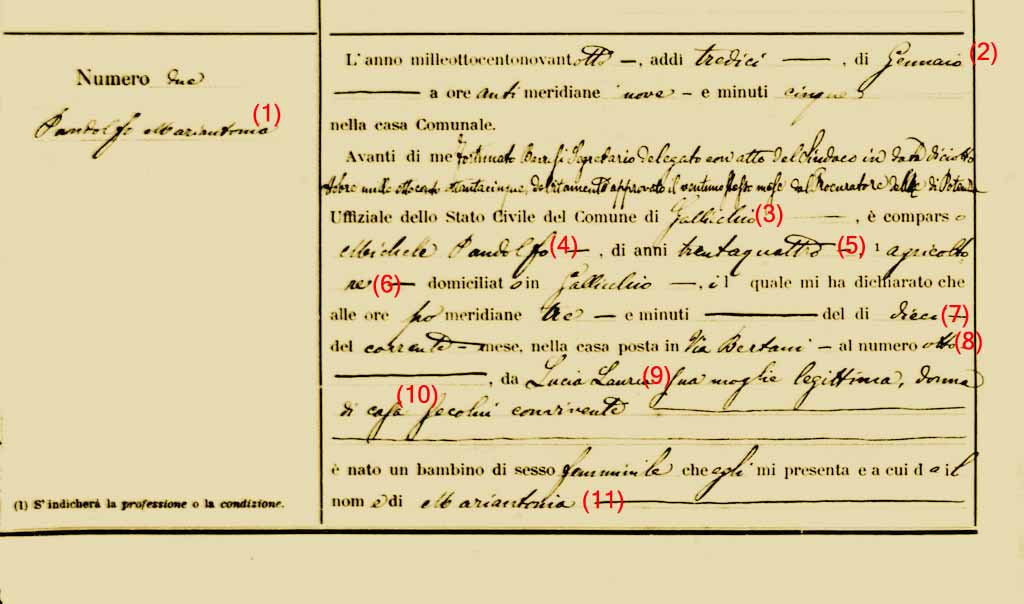 Numero due
Pandolfo Mariantonia (1)
(1) S'indicherà la professione o la condizione.
L'anno milleottocentonovantotto —, addì tredici —, di Gennaio (2)
— a ore anti meridiane nove — e minuti cinque,
nella casa Comunale.
Avanti di me Fortunato Segretario delegato con atto del Sindaco in data diciotto
mille ottocento novantacinque, debitamente approvato il ventuno stesso mese dal Procuratore del Re di Potenza
Uffiziale dello Stato Civile del Comune di Gallicchio (3) —, è comparso
Michele Pandolfo (4) —, di anni trentaquattro (5), agricolto
re (6) — domiciliato in Gallicchio —, il quale mi ha dichiarato che
alle ore po meridiane tre — e minuti — del dì dieci (7)
del corrente — mese, nella casa posta in Via Bertani — al numero otto (8)
—, da Lucia Lauria (9) sua moglie legittima, donna
di casa (10) secolui convivente —
è nato un bambino di sesso femminile che egli mi presenta e a cui dà il
nome di Mariantonia (11) —